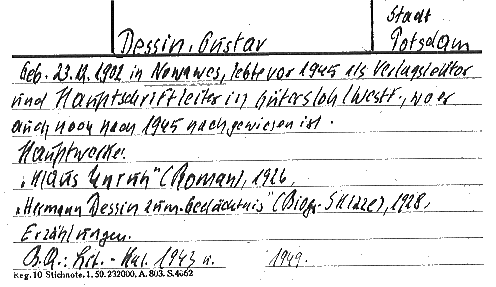 Stadt
Dessin, Gustav
Potsdam
Geb. 23.12.1902 in Nowawes, lebte vor 1945 als Verlagslektor
und Hauptschriftleiter in Gütersloh/Westf., wo er
auch noch nach 1945 nachgewiesen ist.
Hauptwerke:
„Klaus Unruh" (Roman), 1926,
„Hermann Dessin zum Gedächtnis" (Biogr. Skizze), 1928,
Erzählungen.
B.Q.: Lit.-Kal. 1943 u. 1949.
Reg. 10 Stichnote. 1. 59. 232000. A. 803. S. 4662